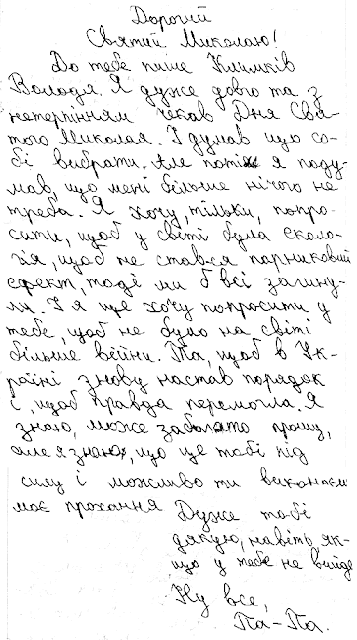 Дорогий
Святий Миколаю!
До тебе пише Климків
Володя. Я дуже довго та з
нетерпінням чекав Дня Свя-
того Миколая. І думав що со-
бі вибрати. Але потім я поду-
мав, що мені більше нічого не
треба. Я хочу, тільки, попро-
сити, щоб у світі була еколо-
гія, щоб не стався парниковий
ефект, тоді ми б всі загину-
ли. І я ще хочу попросити у
тебе, щоб не було на світі
більше війни. Та, щоб в Ук-
раїні знову настав порядок
і, щоб правда перемогла. Я
знаю, може забагато прошу,
але я знаю, що це тобі під
силу і можливо ти виконаєш
моє прохання
Дуже тобі
дякую, навіть, як-
що у тебе не вийде
Ну все,
Па-Па.